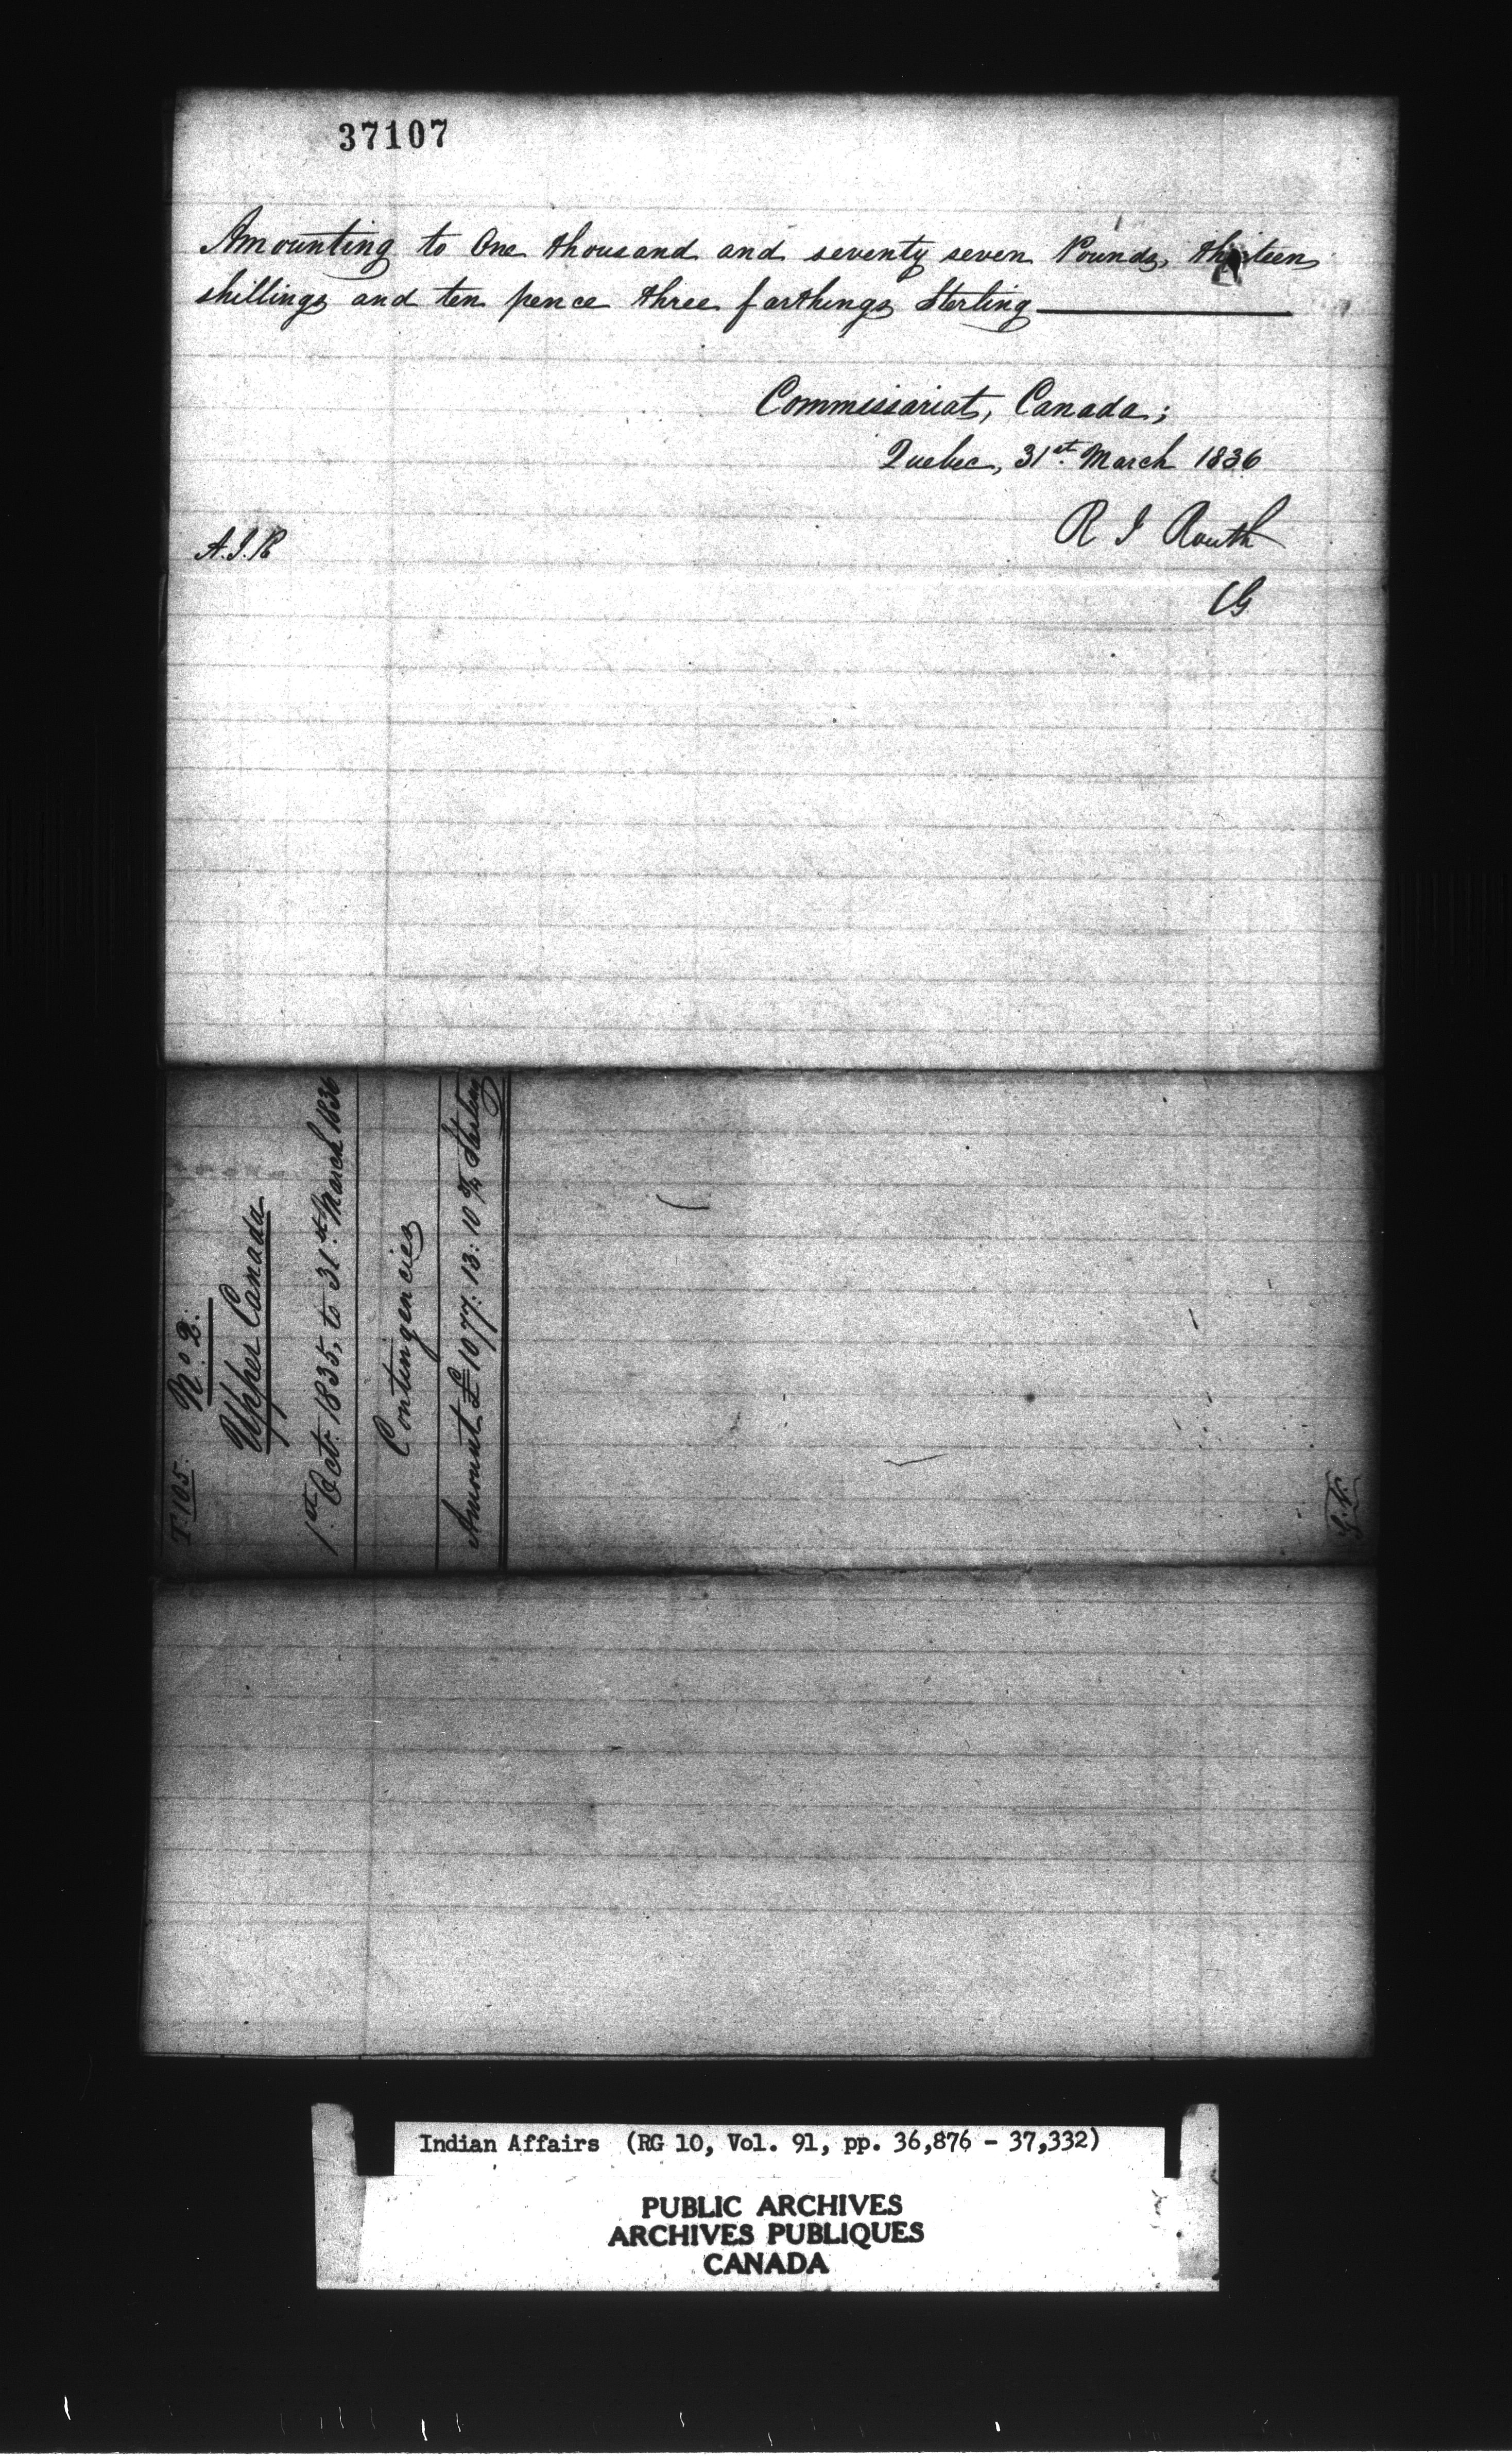 37107
Amounting to One thousand and seventy seven Pounds, thirteen
shillings and ten pence three farthings Sterling
Commissariat, Canada;
Quebec, 31st March 1836
R I Routh
CG
A.J.R
T.105. No. 2.
Upper Canada
1st Oct: 1835, to 31st March 1836
Contingencies
Amount £1077: 13: 10 3/4 Sterling
Indian Affairs (RG 10, Vol. 91, pp. 36,876 - 37,332)
PUBLIC ARCHIVES
ARCHIVES PUBLIQUES
CANADA